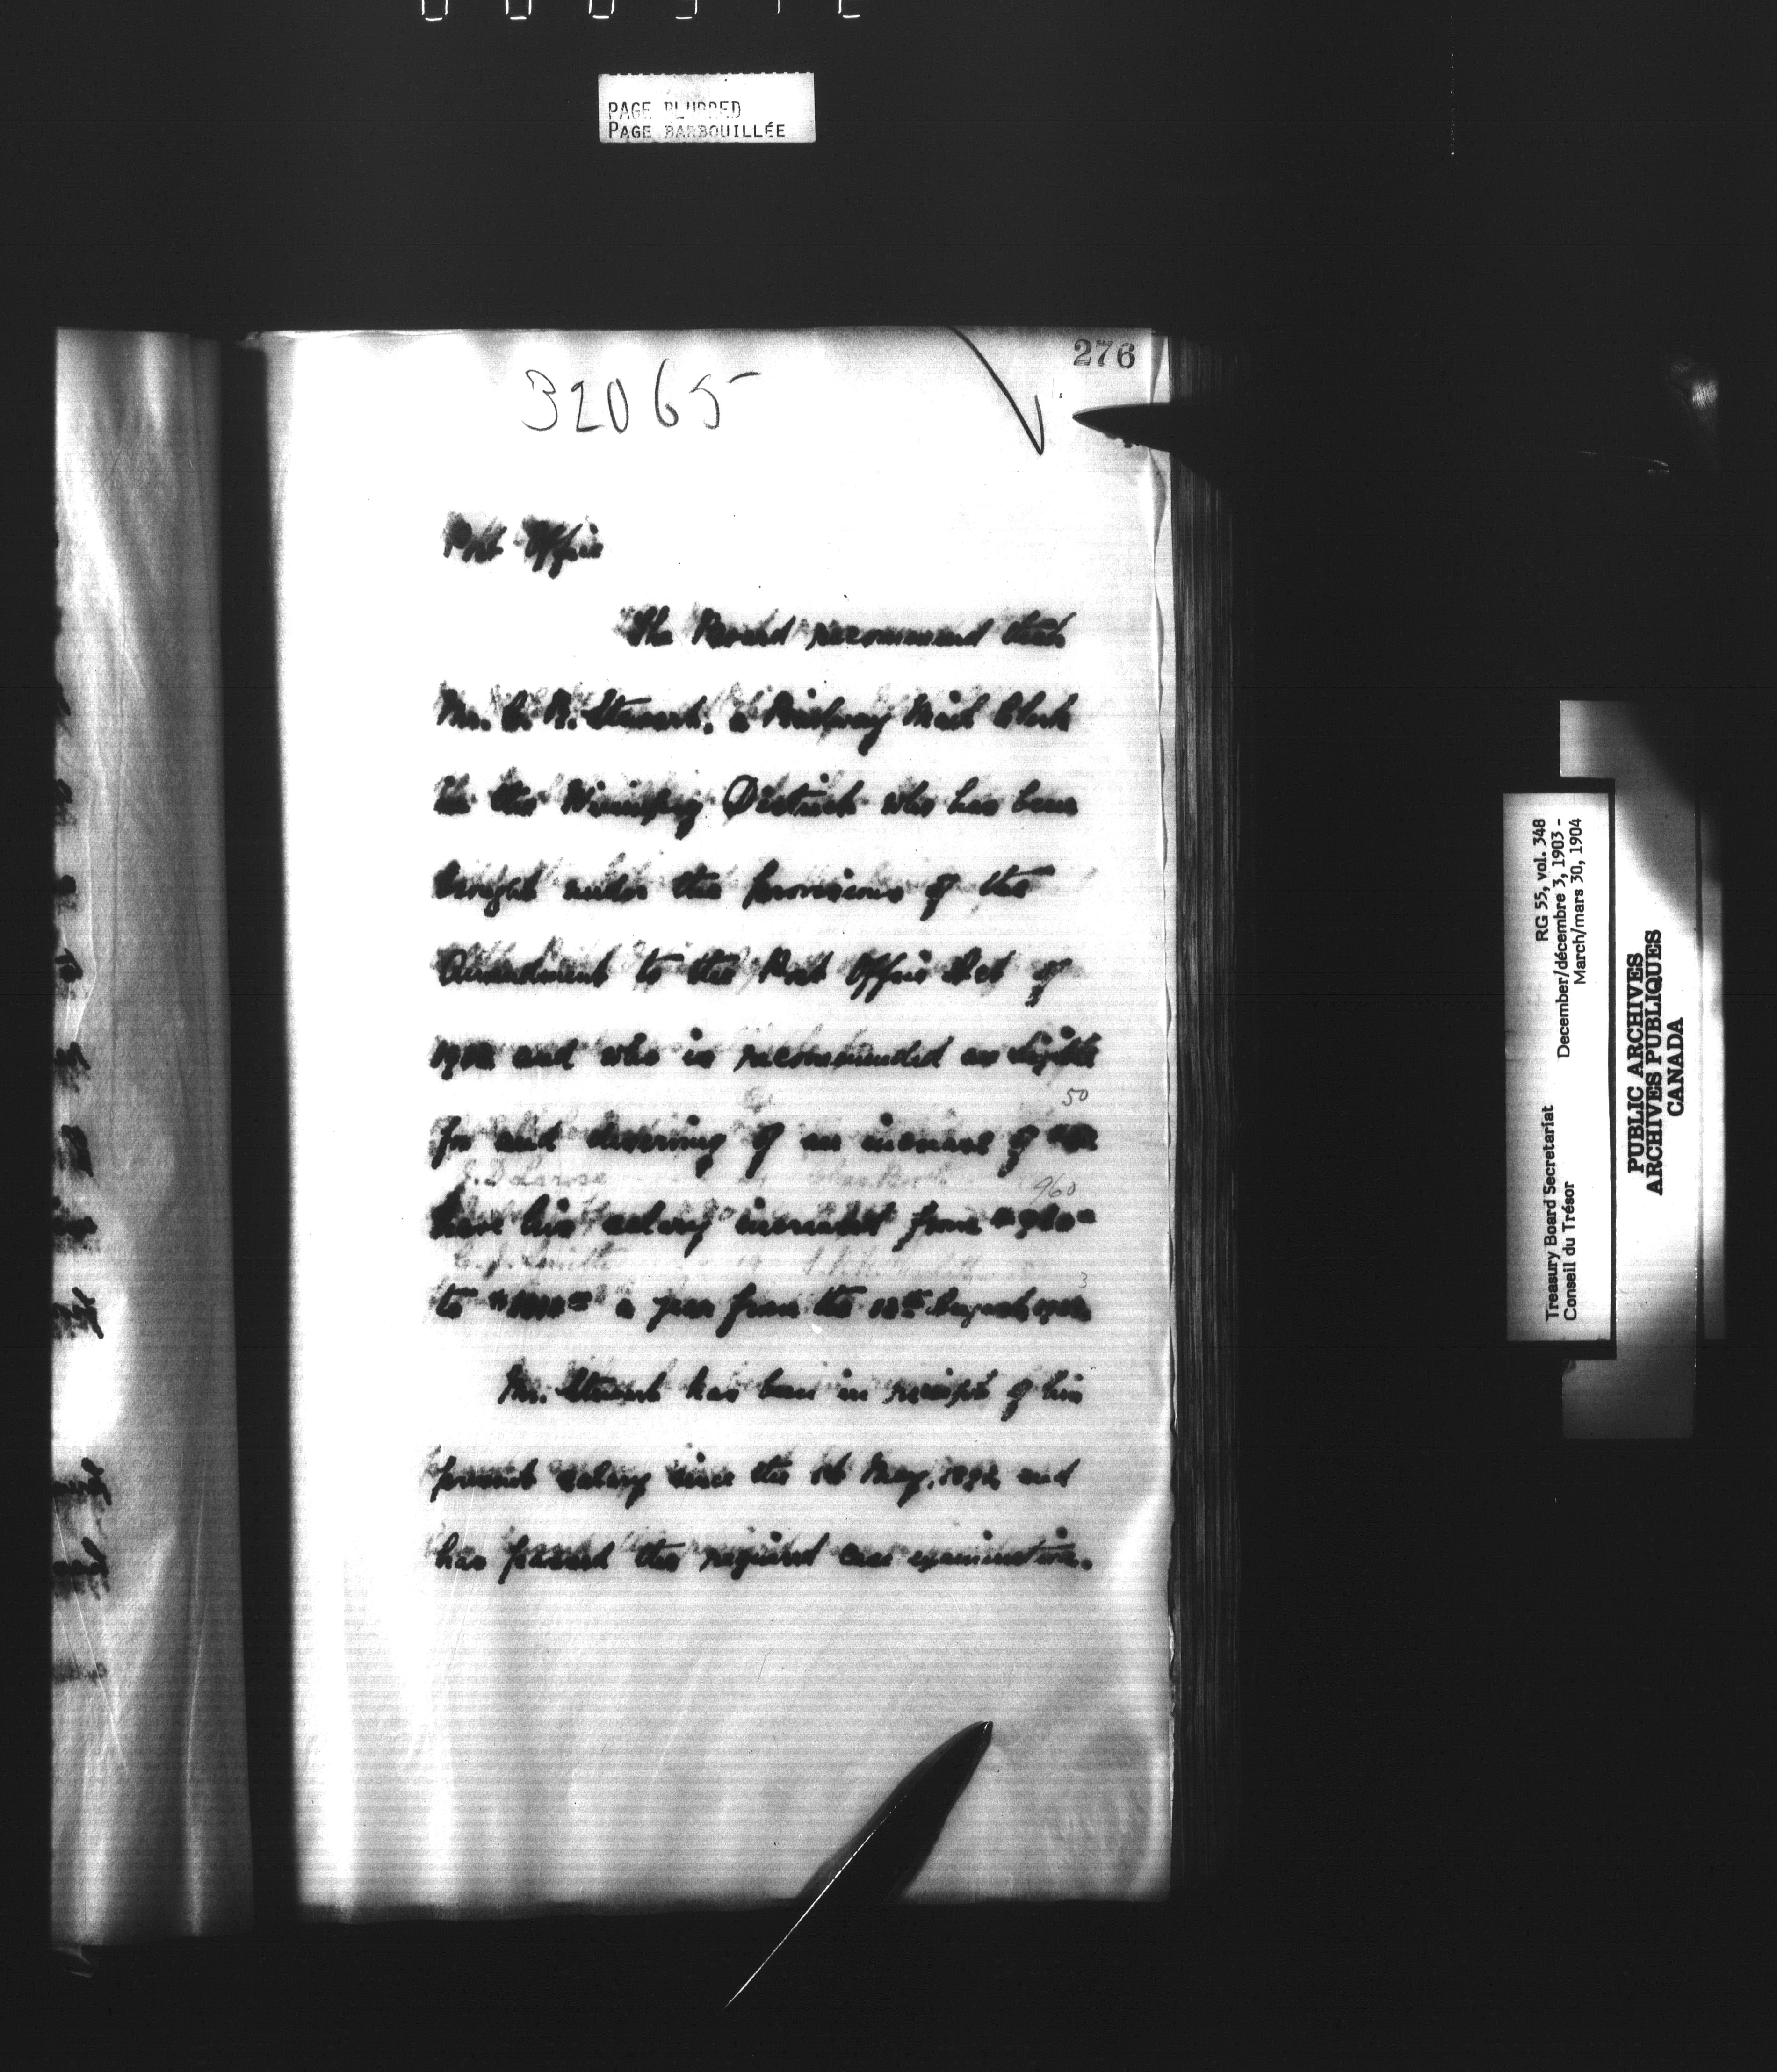 PAGE BLURRED
PAGE BARBOUILLÉE
276
32065
Post Office
The Board recommend that
Mr. C. R. Stewart, a Railway Mail Clerk
in the Winnipeg District who has been
brought under the provisions of the
Amendment to the Post Office Act of
and who is recommended as eligible
50
for and deserving of an increase of
J. D. Larose
960
have his salary increased from $960
3
to a year from the August
Mr. Stewart has been in receipt of his
present salary since the 1st May, 1892 and
has passed the required case examination.
RG 55, vol. 348
Treasury Board Secretariat December/décembre 3, 1903 -
Conseil du Trésor March/mars 30, 1904
PUBLIC ARCHIVES
ARCHIVES PUBLIQUES
CANADA